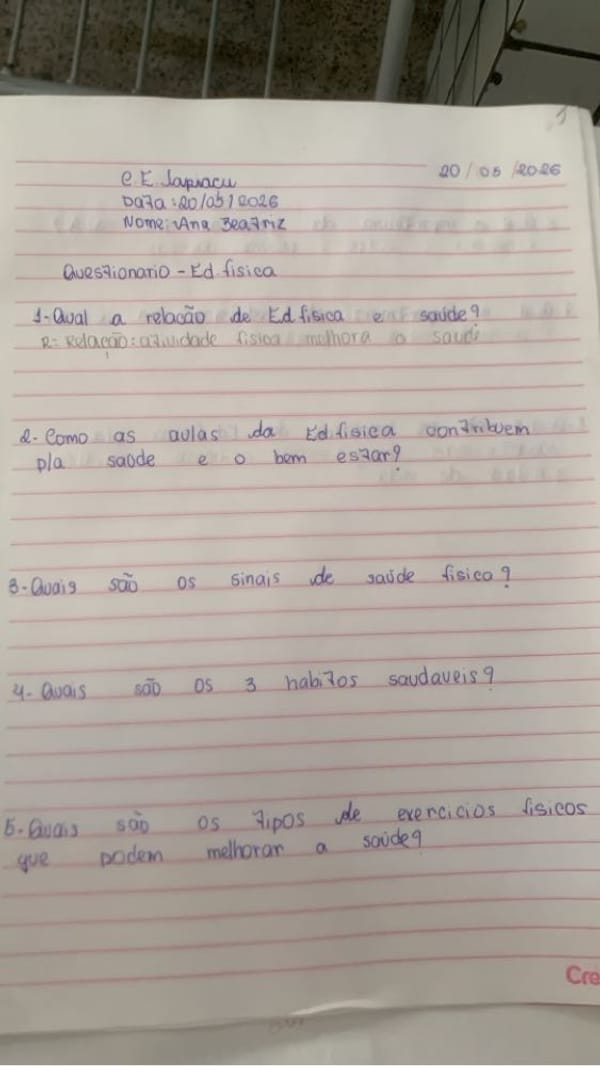 20/05/2026
C.E Japiacu
Data: 20/05/2026
Nome: Ana Beatriz
Questionario - Ed fisica
1- Qual a relacão de Ed fisica e saúde?
R= Relação: atividade fisica melhora a saud
2- Como as aulas da Ed fisica contribuem
pla saúde e o bem estar?
3- Quais são os sinais de saúde fisica?
4- Quais são os 3 habitos saudaveis?
5- Quais são os tipos de exercicios fisicos
que podem melhorar a saúde?
Cre